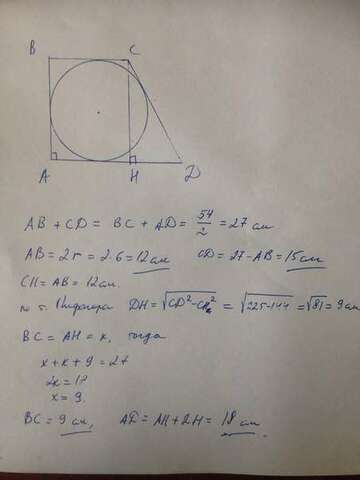 B C
A H D
AB + CD = BC + AD = 54/2 = 27 см
AB = 2r = 2·6 = 12 см CD = 27 - AB = 15 см
CH = AB = 12 см.
по т. Пифагора DH = √(CD² - CH²) = √(225-144) = √81 = 9 см
BC = AH = x, тогда
x + x + 9 = 27
2x = 18
x = 9.
BC = 9 см, AD = AH + DH = 18 см.